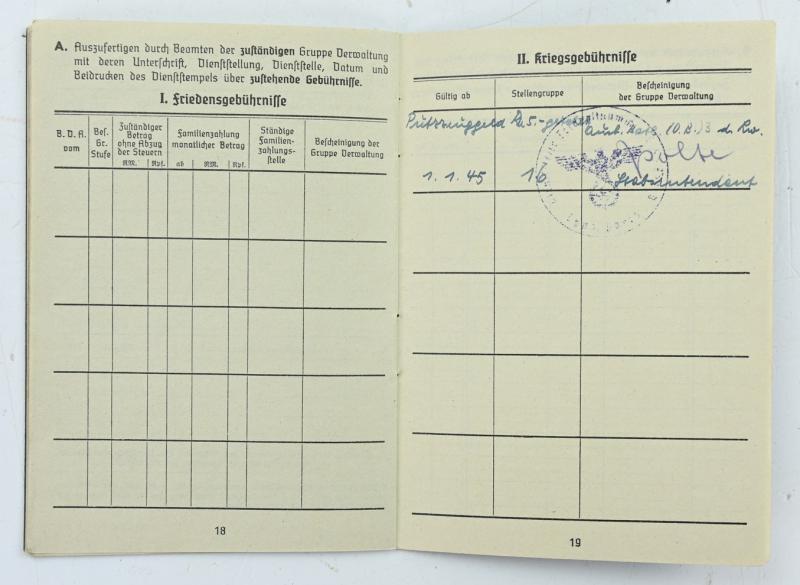 A. Auszufertigen durch Beamten der zuständigen Gruppe Verwaltung
mit deren Unterschrift, Dienststellung, Dienststelle, Datum und
Beidrucken des Dienststempels über zustehende Gebührnisse.
I. Friedensgebührnisse
B. D. A. vom
Bes. Gr. Stufe
Zuständiger Betrag ohne Abzug der Steuern
RM. Rpf.
Familienzahlung monatlicher Betrag
ab RM. Rpf.
Ständige Familienzahlungsstelle
Bescheinigung der Gruppe Verwaltung
18
II. Kriegsgebührnisse
Gültig ab
Stellengruppe
Bescheinigung
der Gruppe Verwaltung
Putzzeuggeld
1. 1. 45 16 Stabsintendant
19